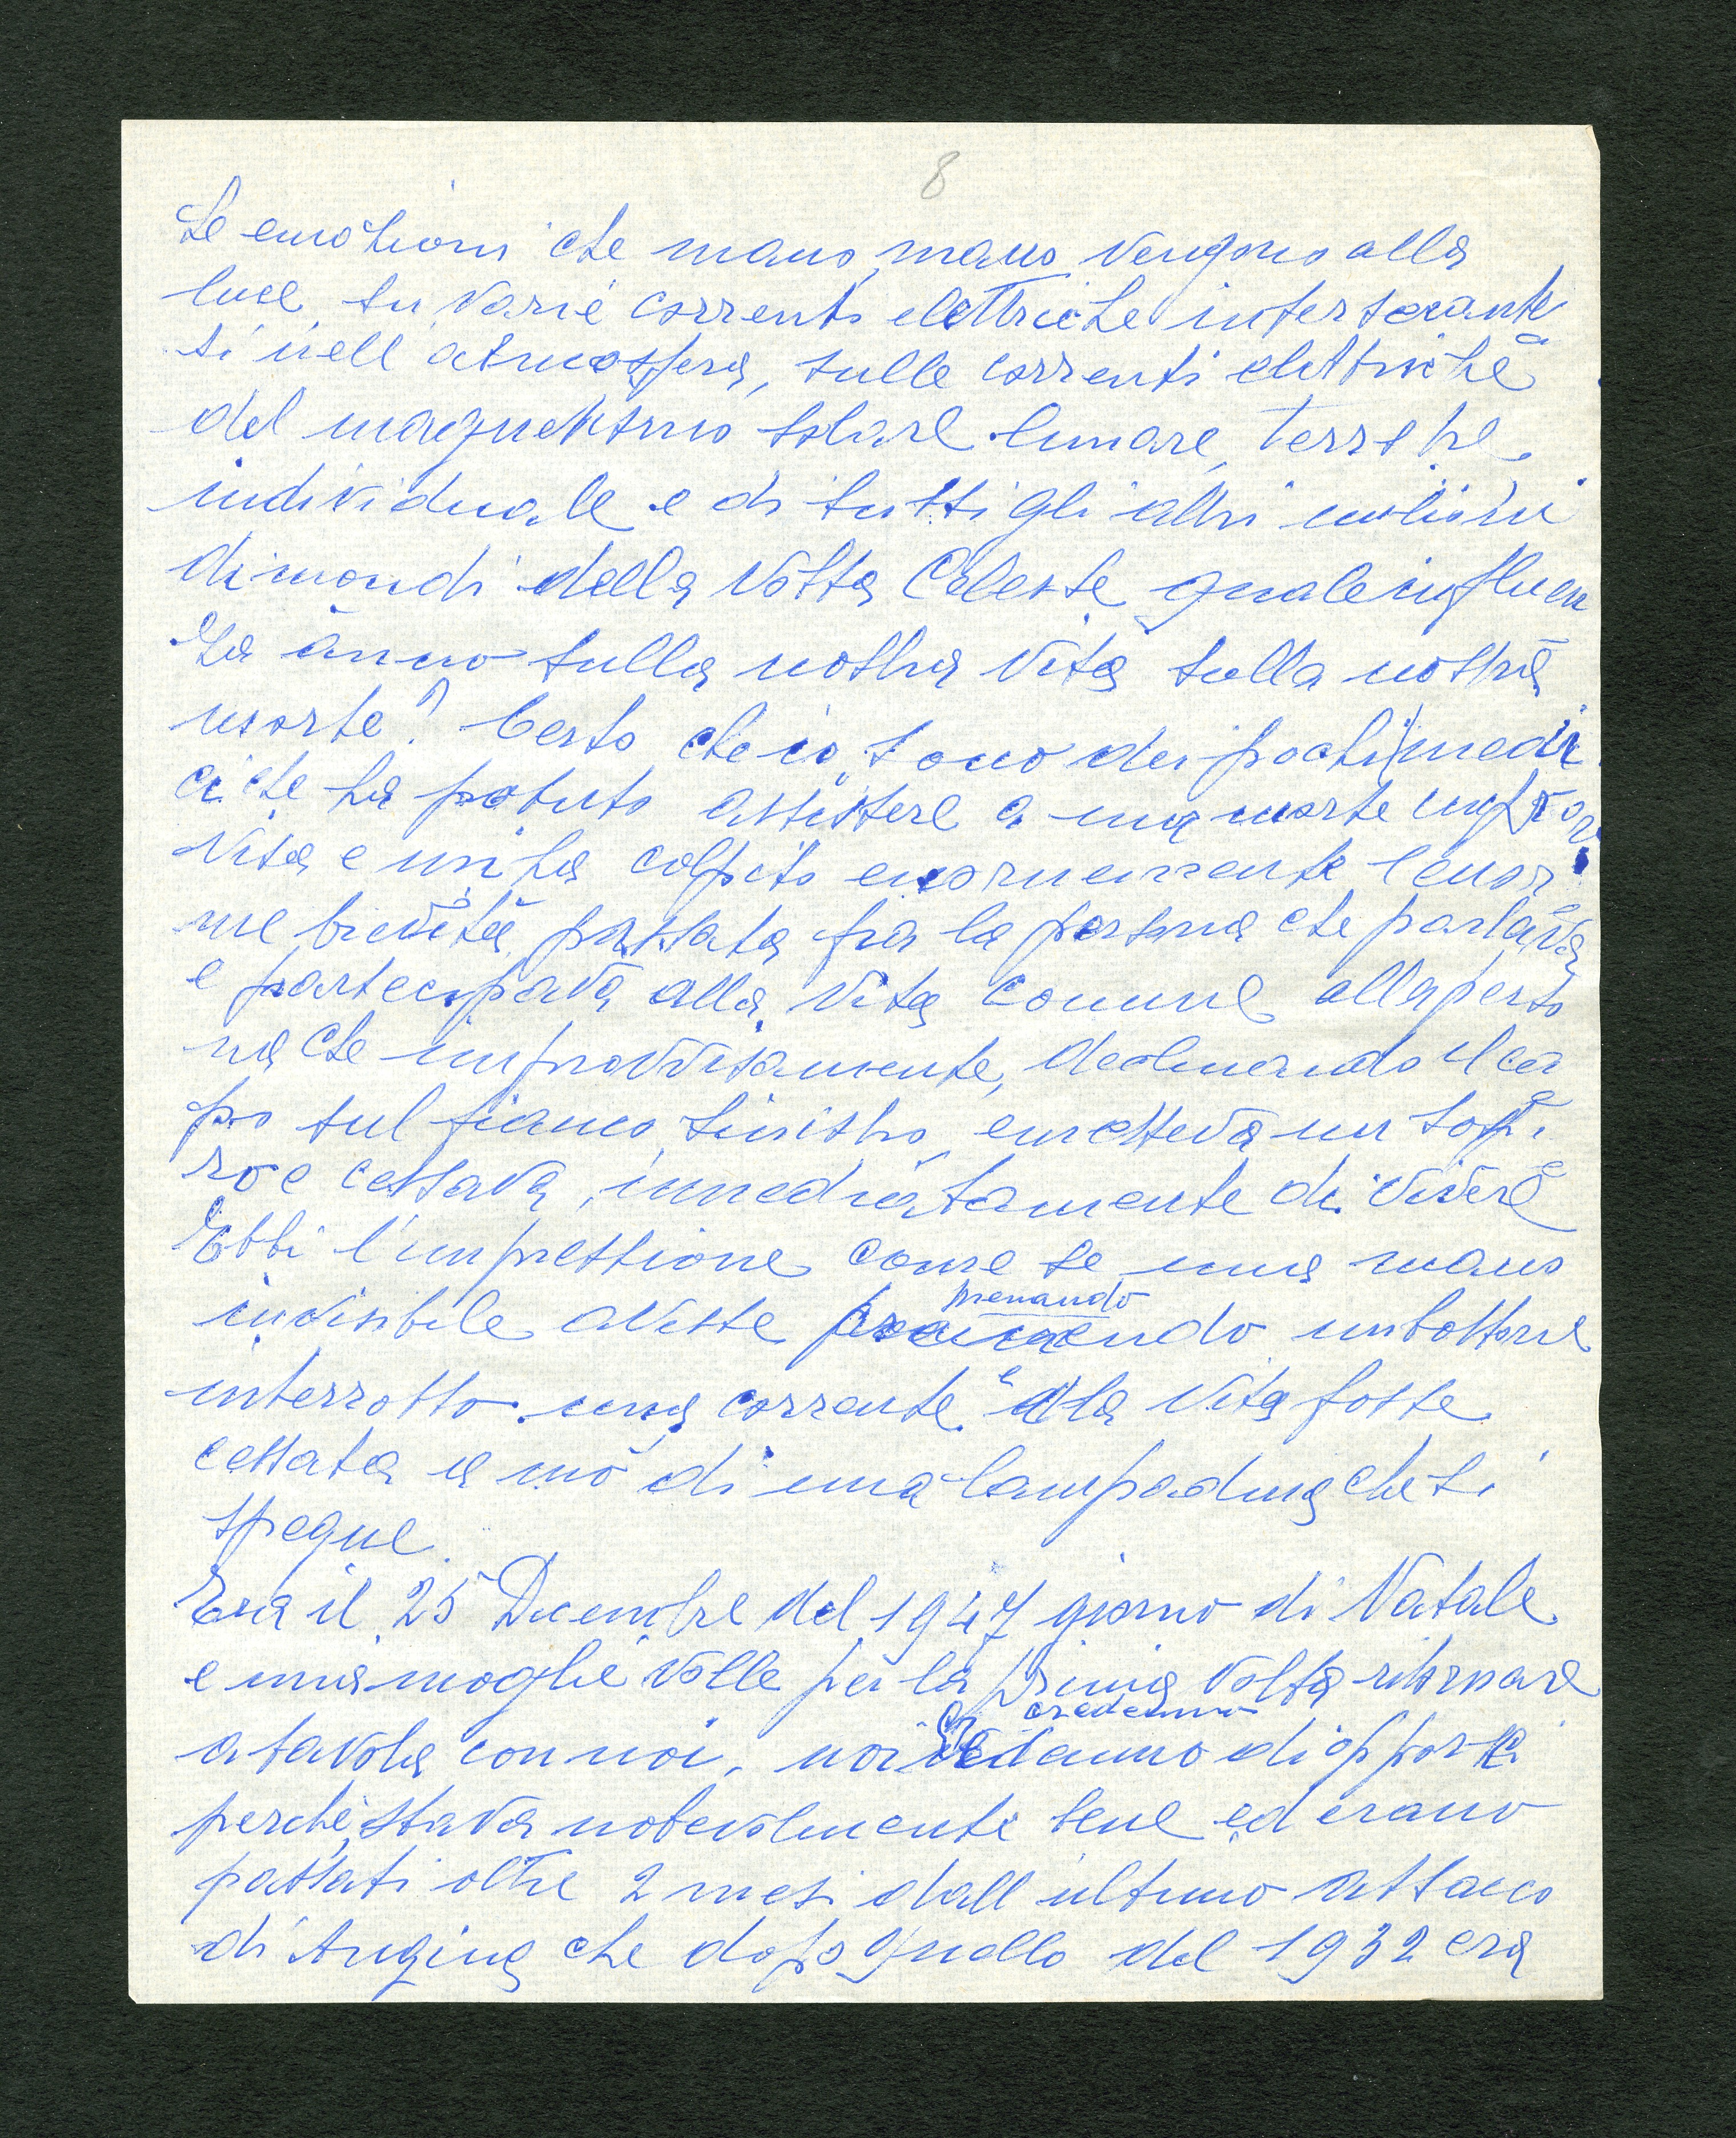 8
Le emozioni che mano, mano vengono alla
luce, su varie correnti elettriche intersecante
si nell'atmosfera, sulle correnti elettriche
del magnetismo solare lunare, terrestre
individuale e di tutti gli altri milioni
di mondi della Volta Celeste quale influen
za ànno sulla nostra vita sulla nostra
morte? Certo che io sono dei pochi medi
ci che ha potuto assistere a una morte improv
visa e mi ha colpito enormemente l'enor
me brevità passata fra la persona che parlava
e partecipava alla vita comune alla perso
na che improvvisamente, declinando il ca
po sul fianco sinistro emetteva un sospi
ro e cessava immediatamente di vivere
Ebbi l'impressione come se una mano
invisibile avesse premendo un bottone
premando
interrotto una corrente e la vita fosse
cessata a mò di una lampadina che si
spegne.
Era il 25 Dicembre del 1947 giorno di Natale
e mia moglie volle per la prima volta ritornare
credemmo
a tavola con noi, noi di opporci
perchè stava notevolmente bene ed erano
passati oltre 2 mesi dall'ultimo attacco
di Angina che dopo quello del 1932 era